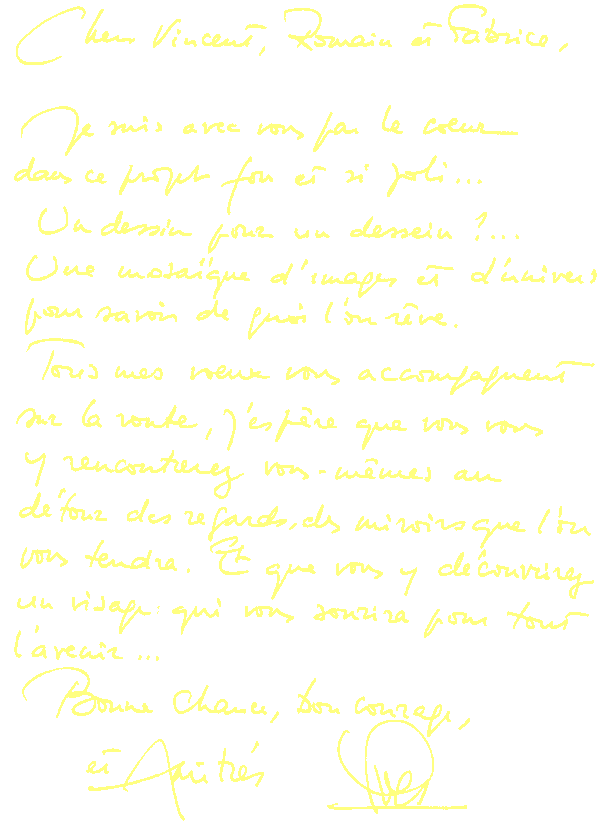 Chers Vincent, Romain et Fabrice,
Je suis avec vous par le coeur
dans ce projet fou et si joli...
Un dessin pour un dessein ?...
Une mosaïque d'images et d'univers
pour savoir de quoi l'on rêve.
Tous mes voeux vous accompagnent
sur la route, j'espère que vous vous
y rencontrerez vous-mêmes au
détour des regards, des miroirs que l'on
vous tendra. Et que vous y découvrirez
un visage qui vous sourira pour tout
l'avenir...
Bonne Chance, bon courage,
et Amitiés